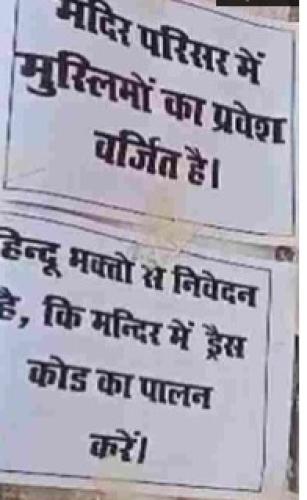 मंदिर परिसर में
मुस्लिमों का प्रवेश
वर्जित है।
हिन्दू भक्तो से निवेदन
है, कि मन्दिर में ड्रैस
कोड का पालन
करें।